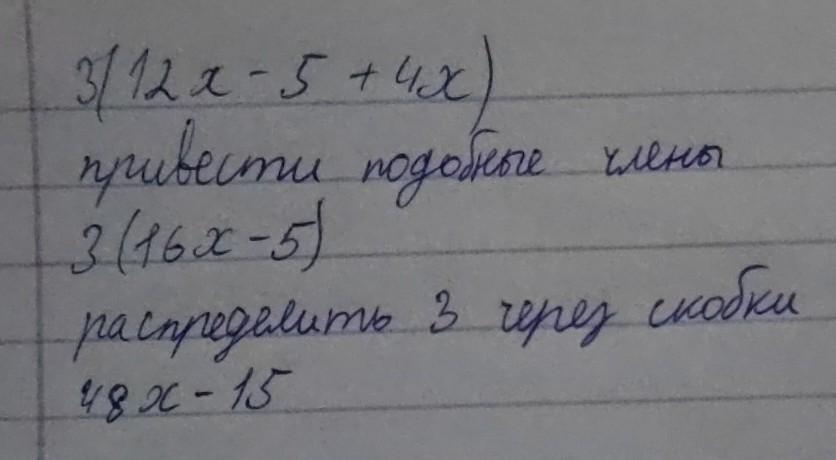 3(12x - 5 + 4x)
привести подобные члены
3(16x - 5)
распределить 3 через скобки
48x - 15